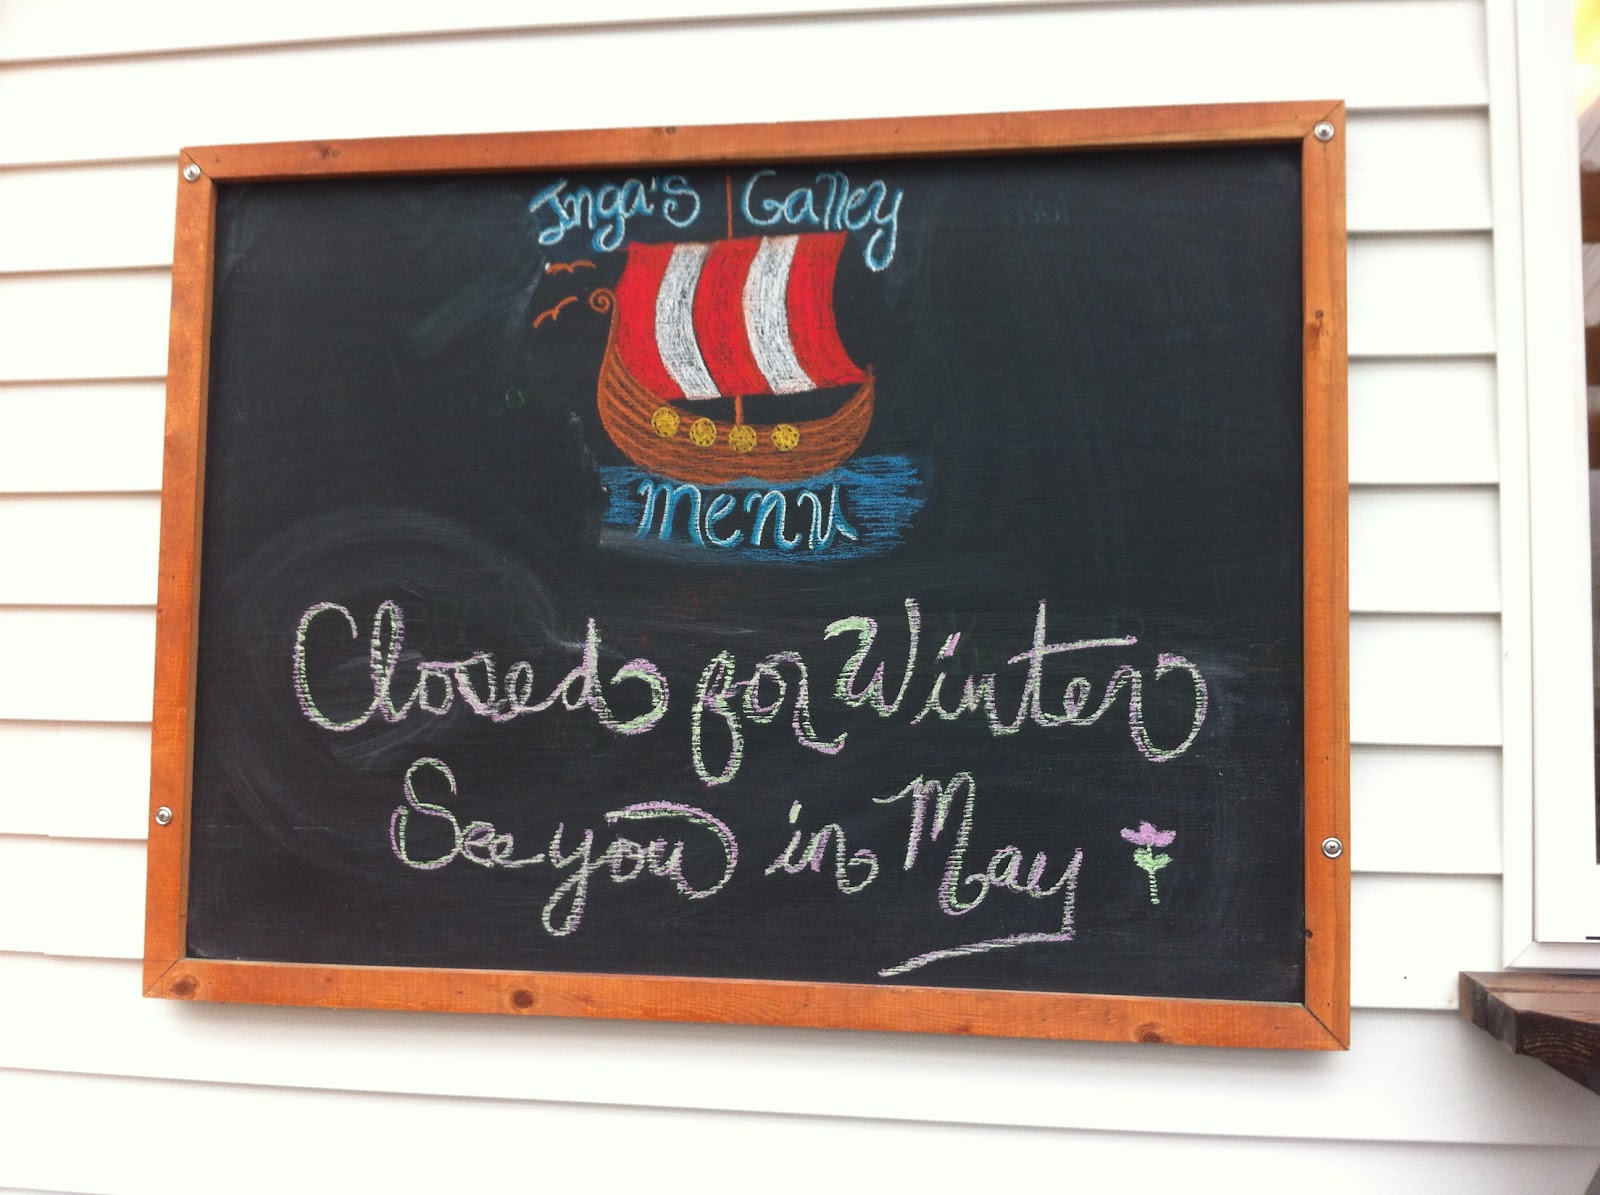 Inga's Galley
Menu
Closed for Winter
See you in May